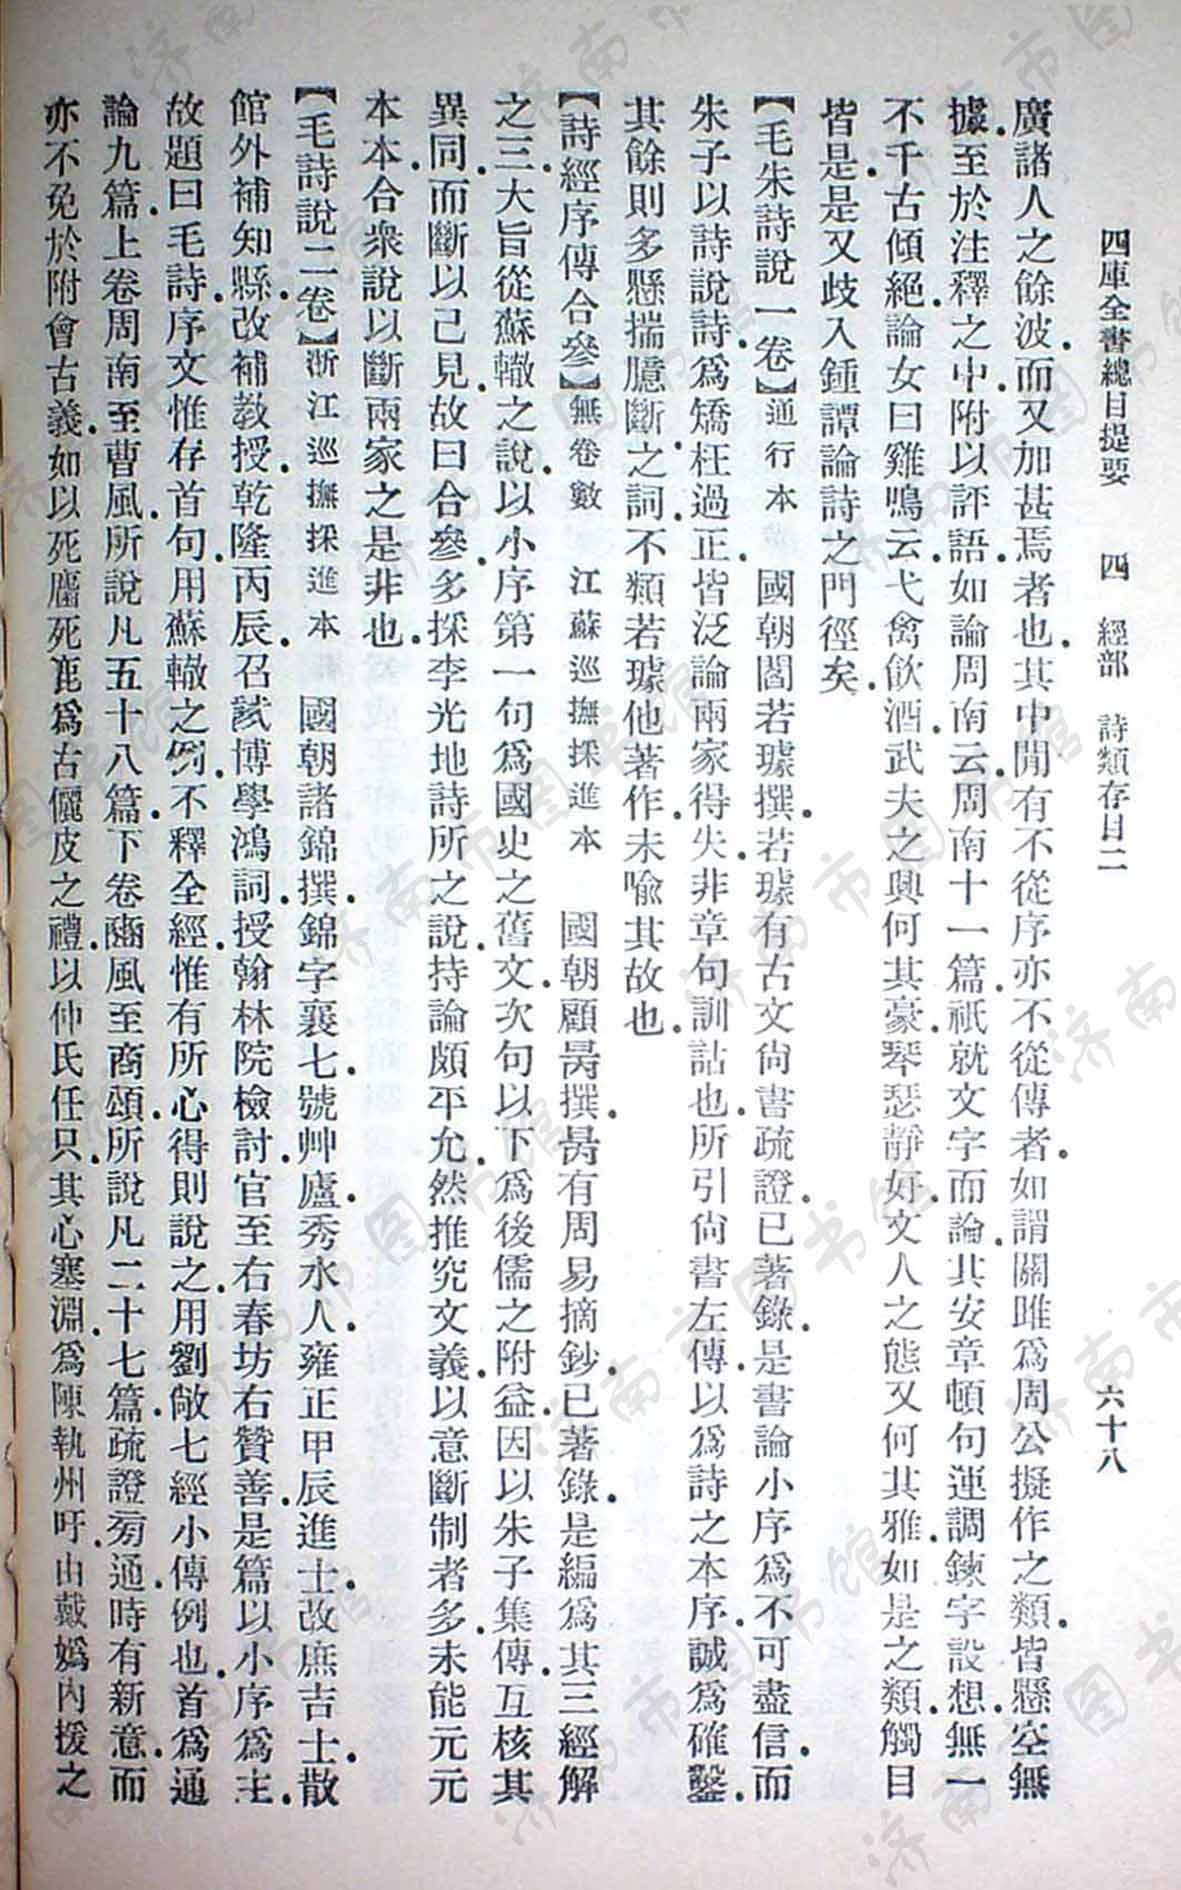 四庫全書總目提要 四 經部 詩類存目二 六十八
廣諸人之餘波.而又加甚焉者也.其中閒有不從序亦不從傳者.如謂關雎爲周公擬作之類.皆懸空無
據.至於注釋之中.附以評語.如論周南云.周南十一篇.祇就文字而論.其安章頓句運調鍊字設想.無一
不千古傾絕.論女曰雞鳴云.弋禽飮酒.武夫之興何其豪.琴瑟靜好.文人之態又何其雅.如是之類.觸目
皆是.是又歧入鍾譚論詩之門徑矣.
【毛朱詩說一卷】通行本 國朝閻若璩撰.若璩有古文尙書疏證.已著錄.是書論小序爲不可盡信.而
朱子以詩說詩.爲矯枉過正.皆泛論兩家得失.非章句訓詁也.所引尙書左傳.以爲詩之本序.誠爲確鑿.
其餘則多懸揣臆斷之詞.不類若璩他著作.未喻其故也.
【詩經序傳合參】無卷數 江蘇巡撫採進本 國朝顧昺撰.昺有周易摘鈔.已著錄.是編爲其三經解
之三.大旨從蘇轍之說.以小序第一句爲國史之舊文.次句以下.爲後儒之附益.因以朱子集傳.互核其
異同.而斷以己見.故曰合參.多採李光地詩所之說.持論頗平允.然推究文義.以意斷制者多.未能元元
本本.合衆說以斷兩家之是非也.
【毛詩說二卷】浙江巡撫採進本 國朝諸錦撰.錦字襄七.號艸廬.秀水人.雍正甲辰進士.改庶吉士.散
館外補知縣.改補教授.乾隆丙辰.召試博學鴻詞.授翰林院檢討.官至右春坊右贊善.是篇以小序爲主.
故題曰毛詩.序文惟存首句.用蘇轍之例.不釋全經.惟有所心得則說之.用劉敞七經小傳例也.首爲通
論九篇.上卷周南至曹風.所說凡五十八篇.下卷豳風至商頌.所說凡二十七篇.疏證旁通.時有新意.而
亦不免於附會古義.如以死麕死鹿爲古儷皮之禮.以仲氏任只.其心塞淵.爲陳執州吁.由戴嬀內援之